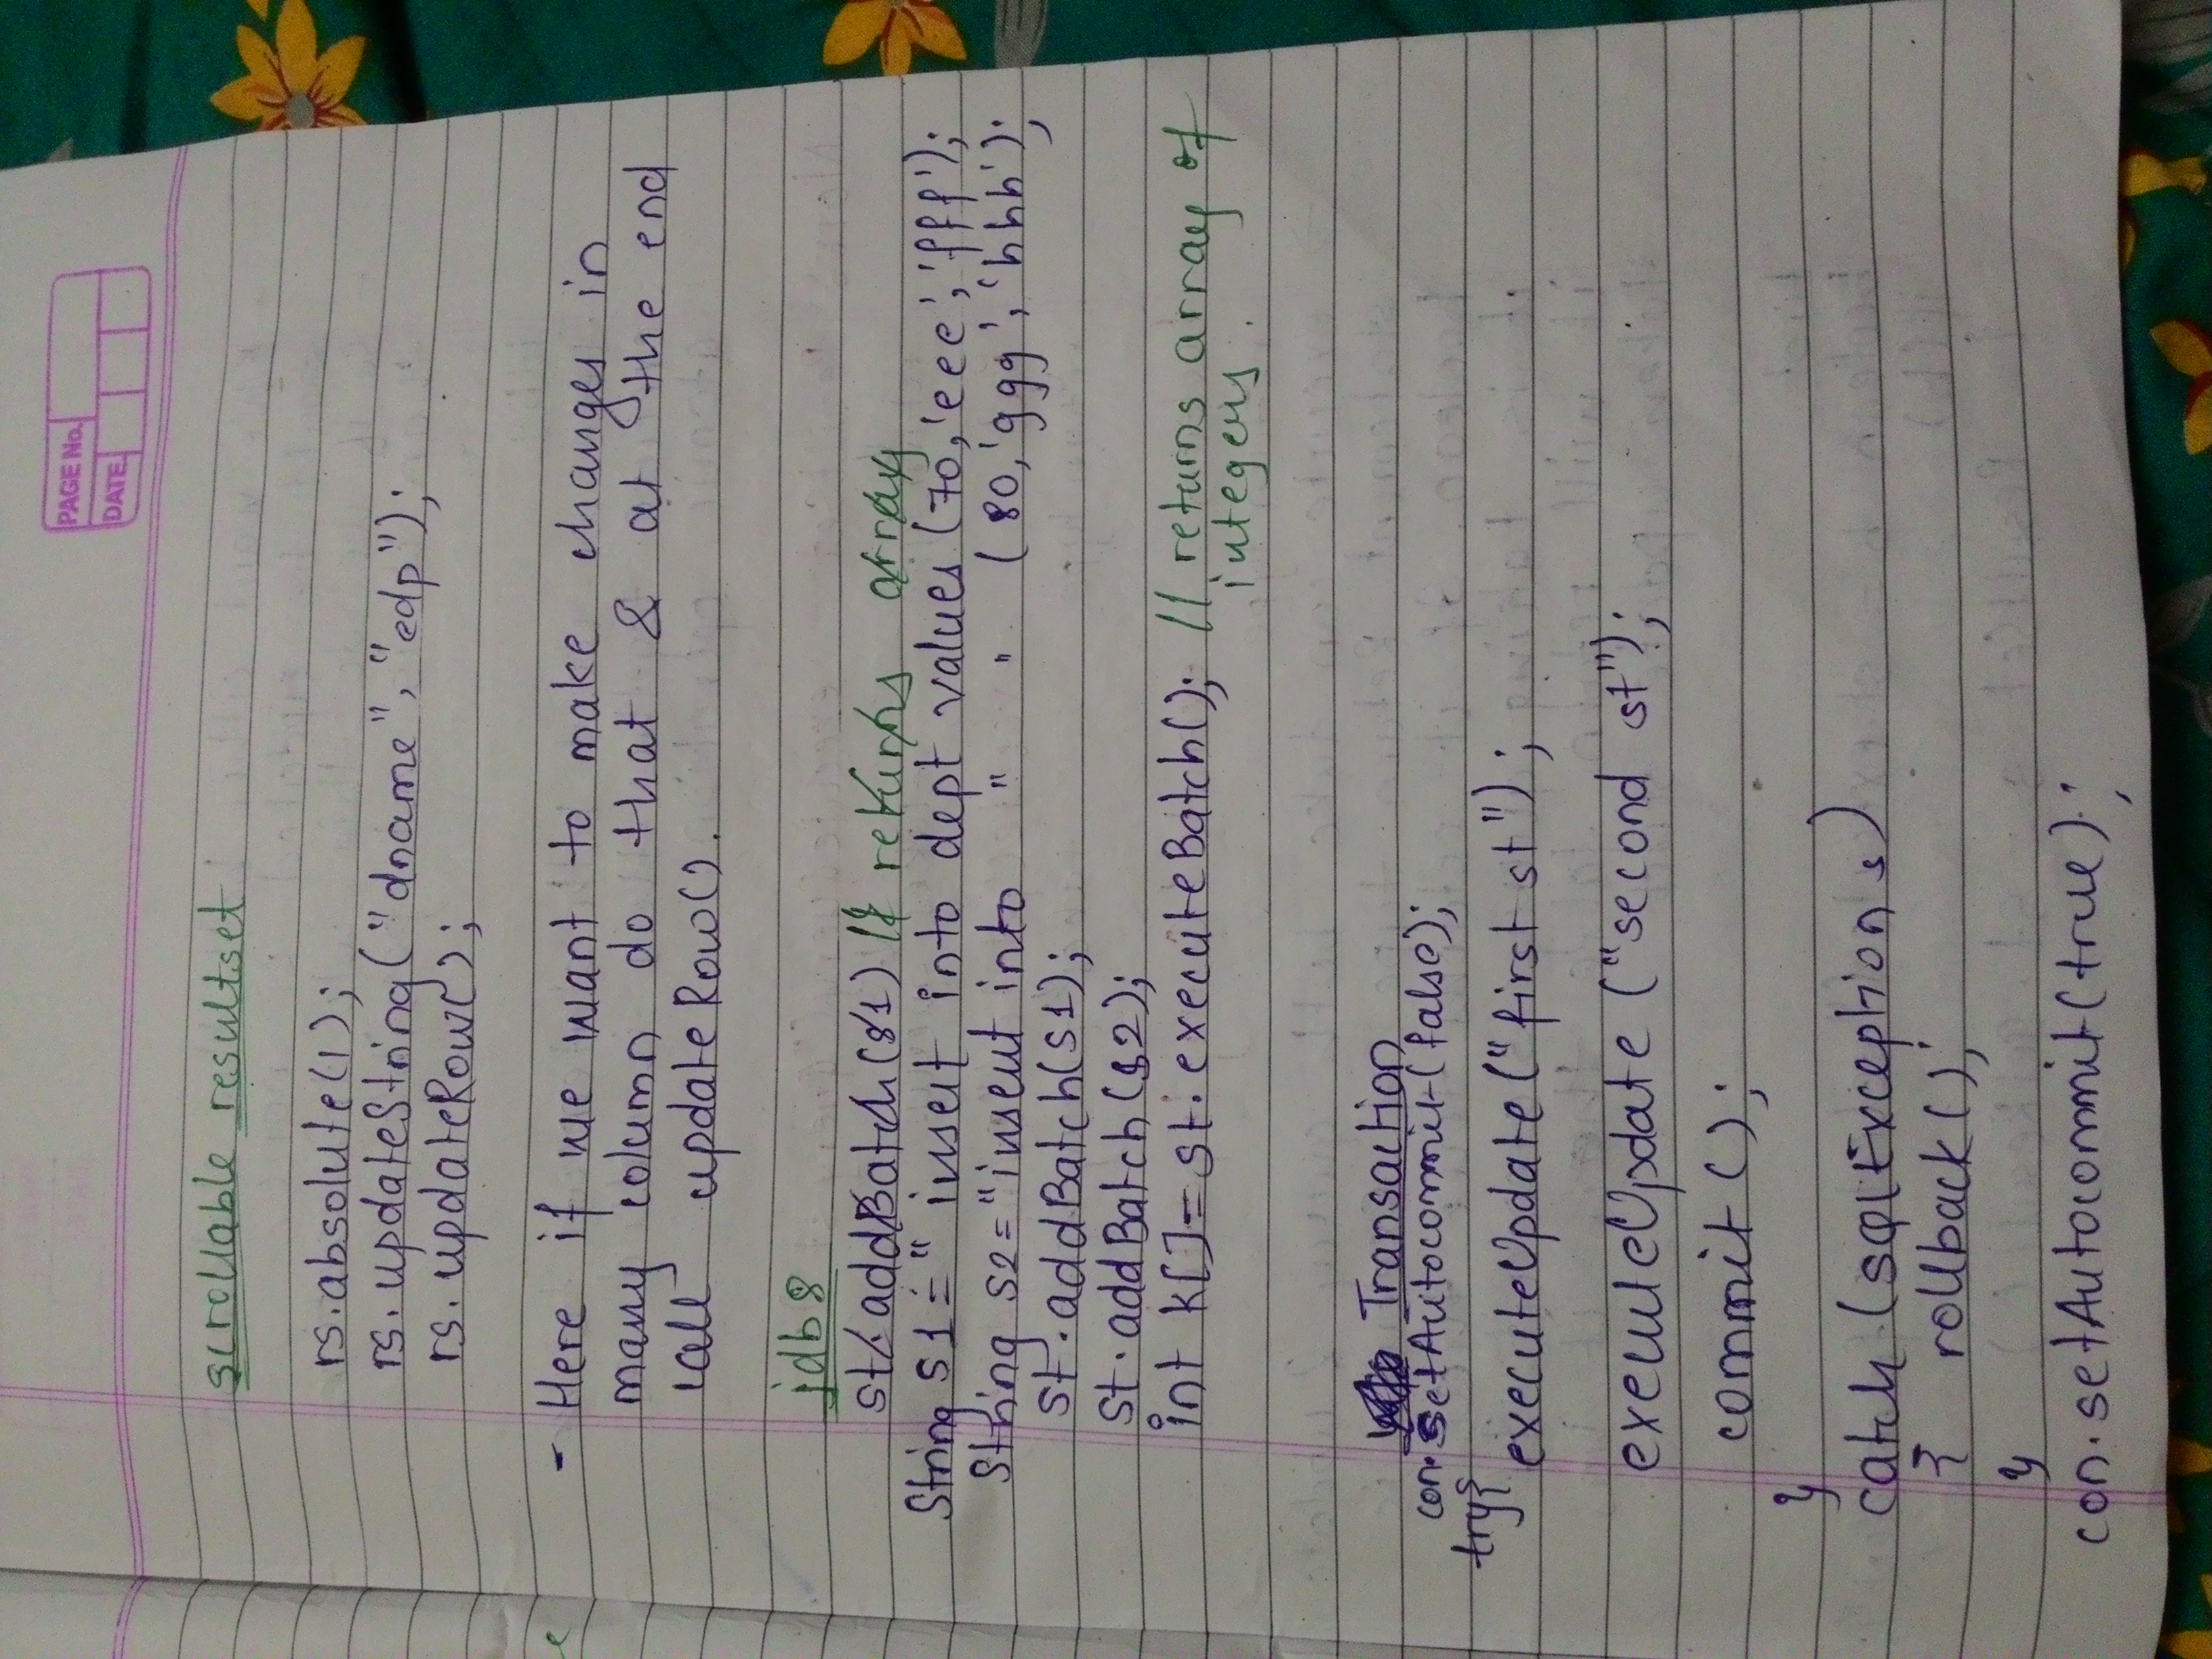 PAGE No.
DATE
scrollable resultset
rs.absolute(1);
rs.updateString("dname", "edp");
rs.updateRow();
- Here if we want to make changes in
many column do that & at the end
call updateRow().
jdb8
st.addBatch(s1) // returns array
String s1 = "insert into dept values (70,'eee','fff');
String s2="insert into " " (80,'ggg','hhh');
st.addBatch(s1);
st.addBatch(s2);
int k[]=st.executeBatch(); // returns array of
integers.
Transaction
con.setAutocommit(false);
try{
executeUpdate("first st");
executeUpdate ("second st");
commit();
}
catch (sqlException s)
{ rollback();
}
con.setAutocommit(true);